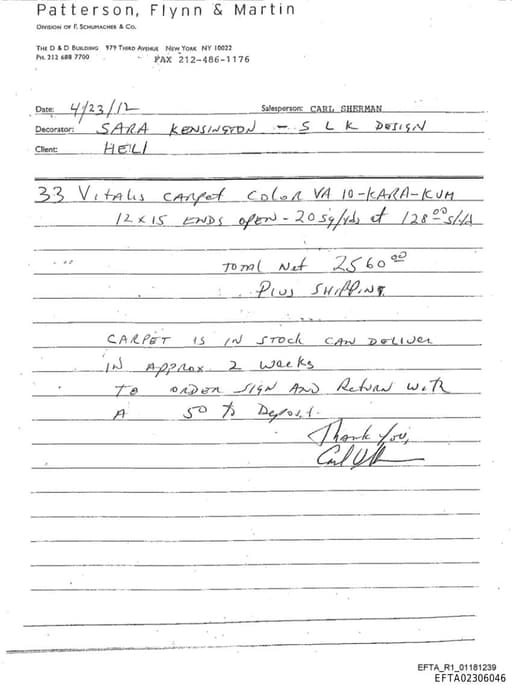 Patterson, Flynn & Martin
DIVISION OF F. SCHUMACHER & CO.
THE D & D BUILDING 979 THIRD AVENUE NEW YORK NY 10022
PH. 212 688 7700 FAX 212-486-1176
Date: 4/23/12 Salesperson: CARL SHERMAN
Decorator: SARA KENSINGTON - SLK DESIGN
Client: HELI
33 Vitalis CARPET COLOR VA 10-KARA-KUM
12 x 15 ENDS OPEN - 20 sq/yds at 128.00 s/yd
TOTAL Net 2560.00
Plus SHIPPING
CARPET IS IN STOCK CAN DELIVER
IN APPROX. 2 weeks
TO ORDER SIGN AND Return with
A 50 % Deposit.
Thank You,
Carl
EFTA_R1_01181239
EFTA02306046